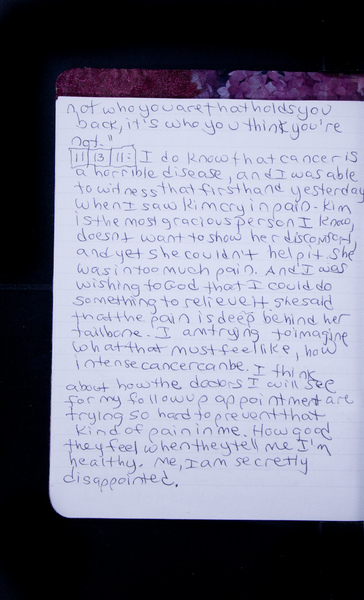 not who you are that holds you
back, it's who you think you're
not."
11 13 11: I do know that cancer is
a horrible disease, and I was able
to witness that firsthand yesterday
when I saw Kim cry in pain. Kim
is the most gracious person I know,
doesn't want to show her discomfort,
and yet she couldn't help it. She
was in too much pain. And I was
wishing to God that I could do
something to relieve it. She said
that the pain is deep behind her
tailbone. I am trying to imagine
what that must feel like, how
intense cancer can be. I think
about how the doctors I will see
for my follow up appointment are
trying so hard to prevent that
kind of pain in me. How good
they feel when they tell me I'm
healthy. Me, I am secretly
disappointed.